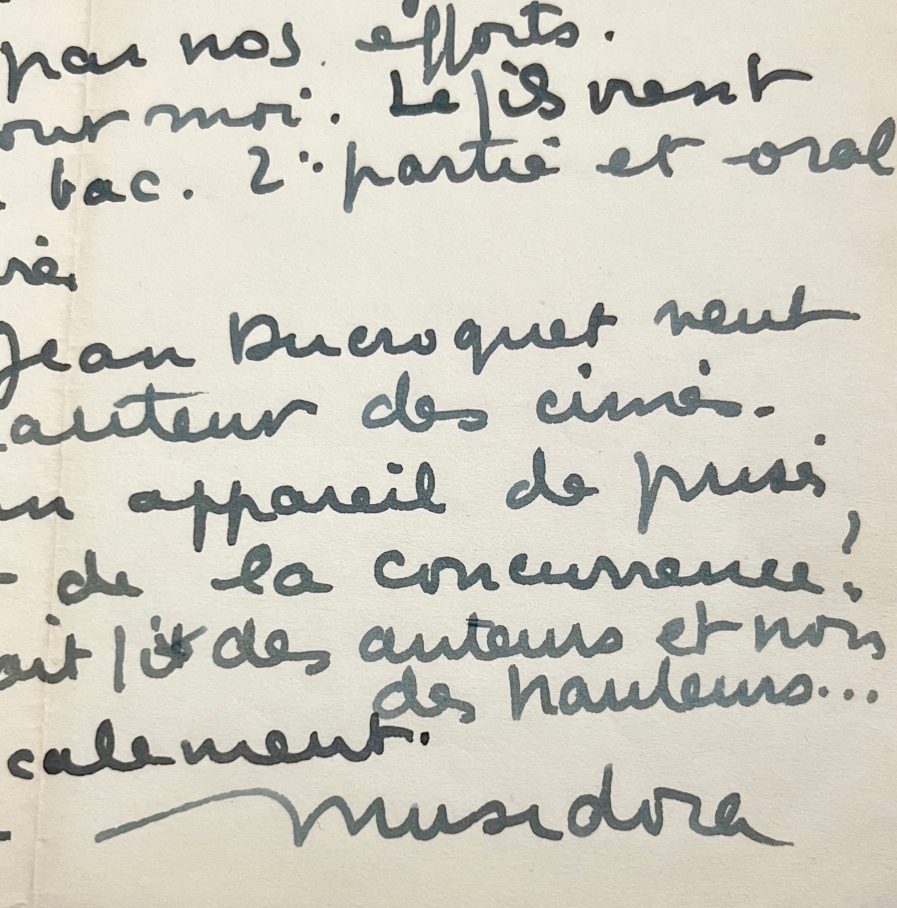 par nos efforts.
our moi. Le fils vient
bac. 2e partie et oral
Jean Ducroquet veut
auteur des cimes.
un appareil de prises
de la concurrence!
ait des auteurs et non
des hauteurs...
calement.
Musidora